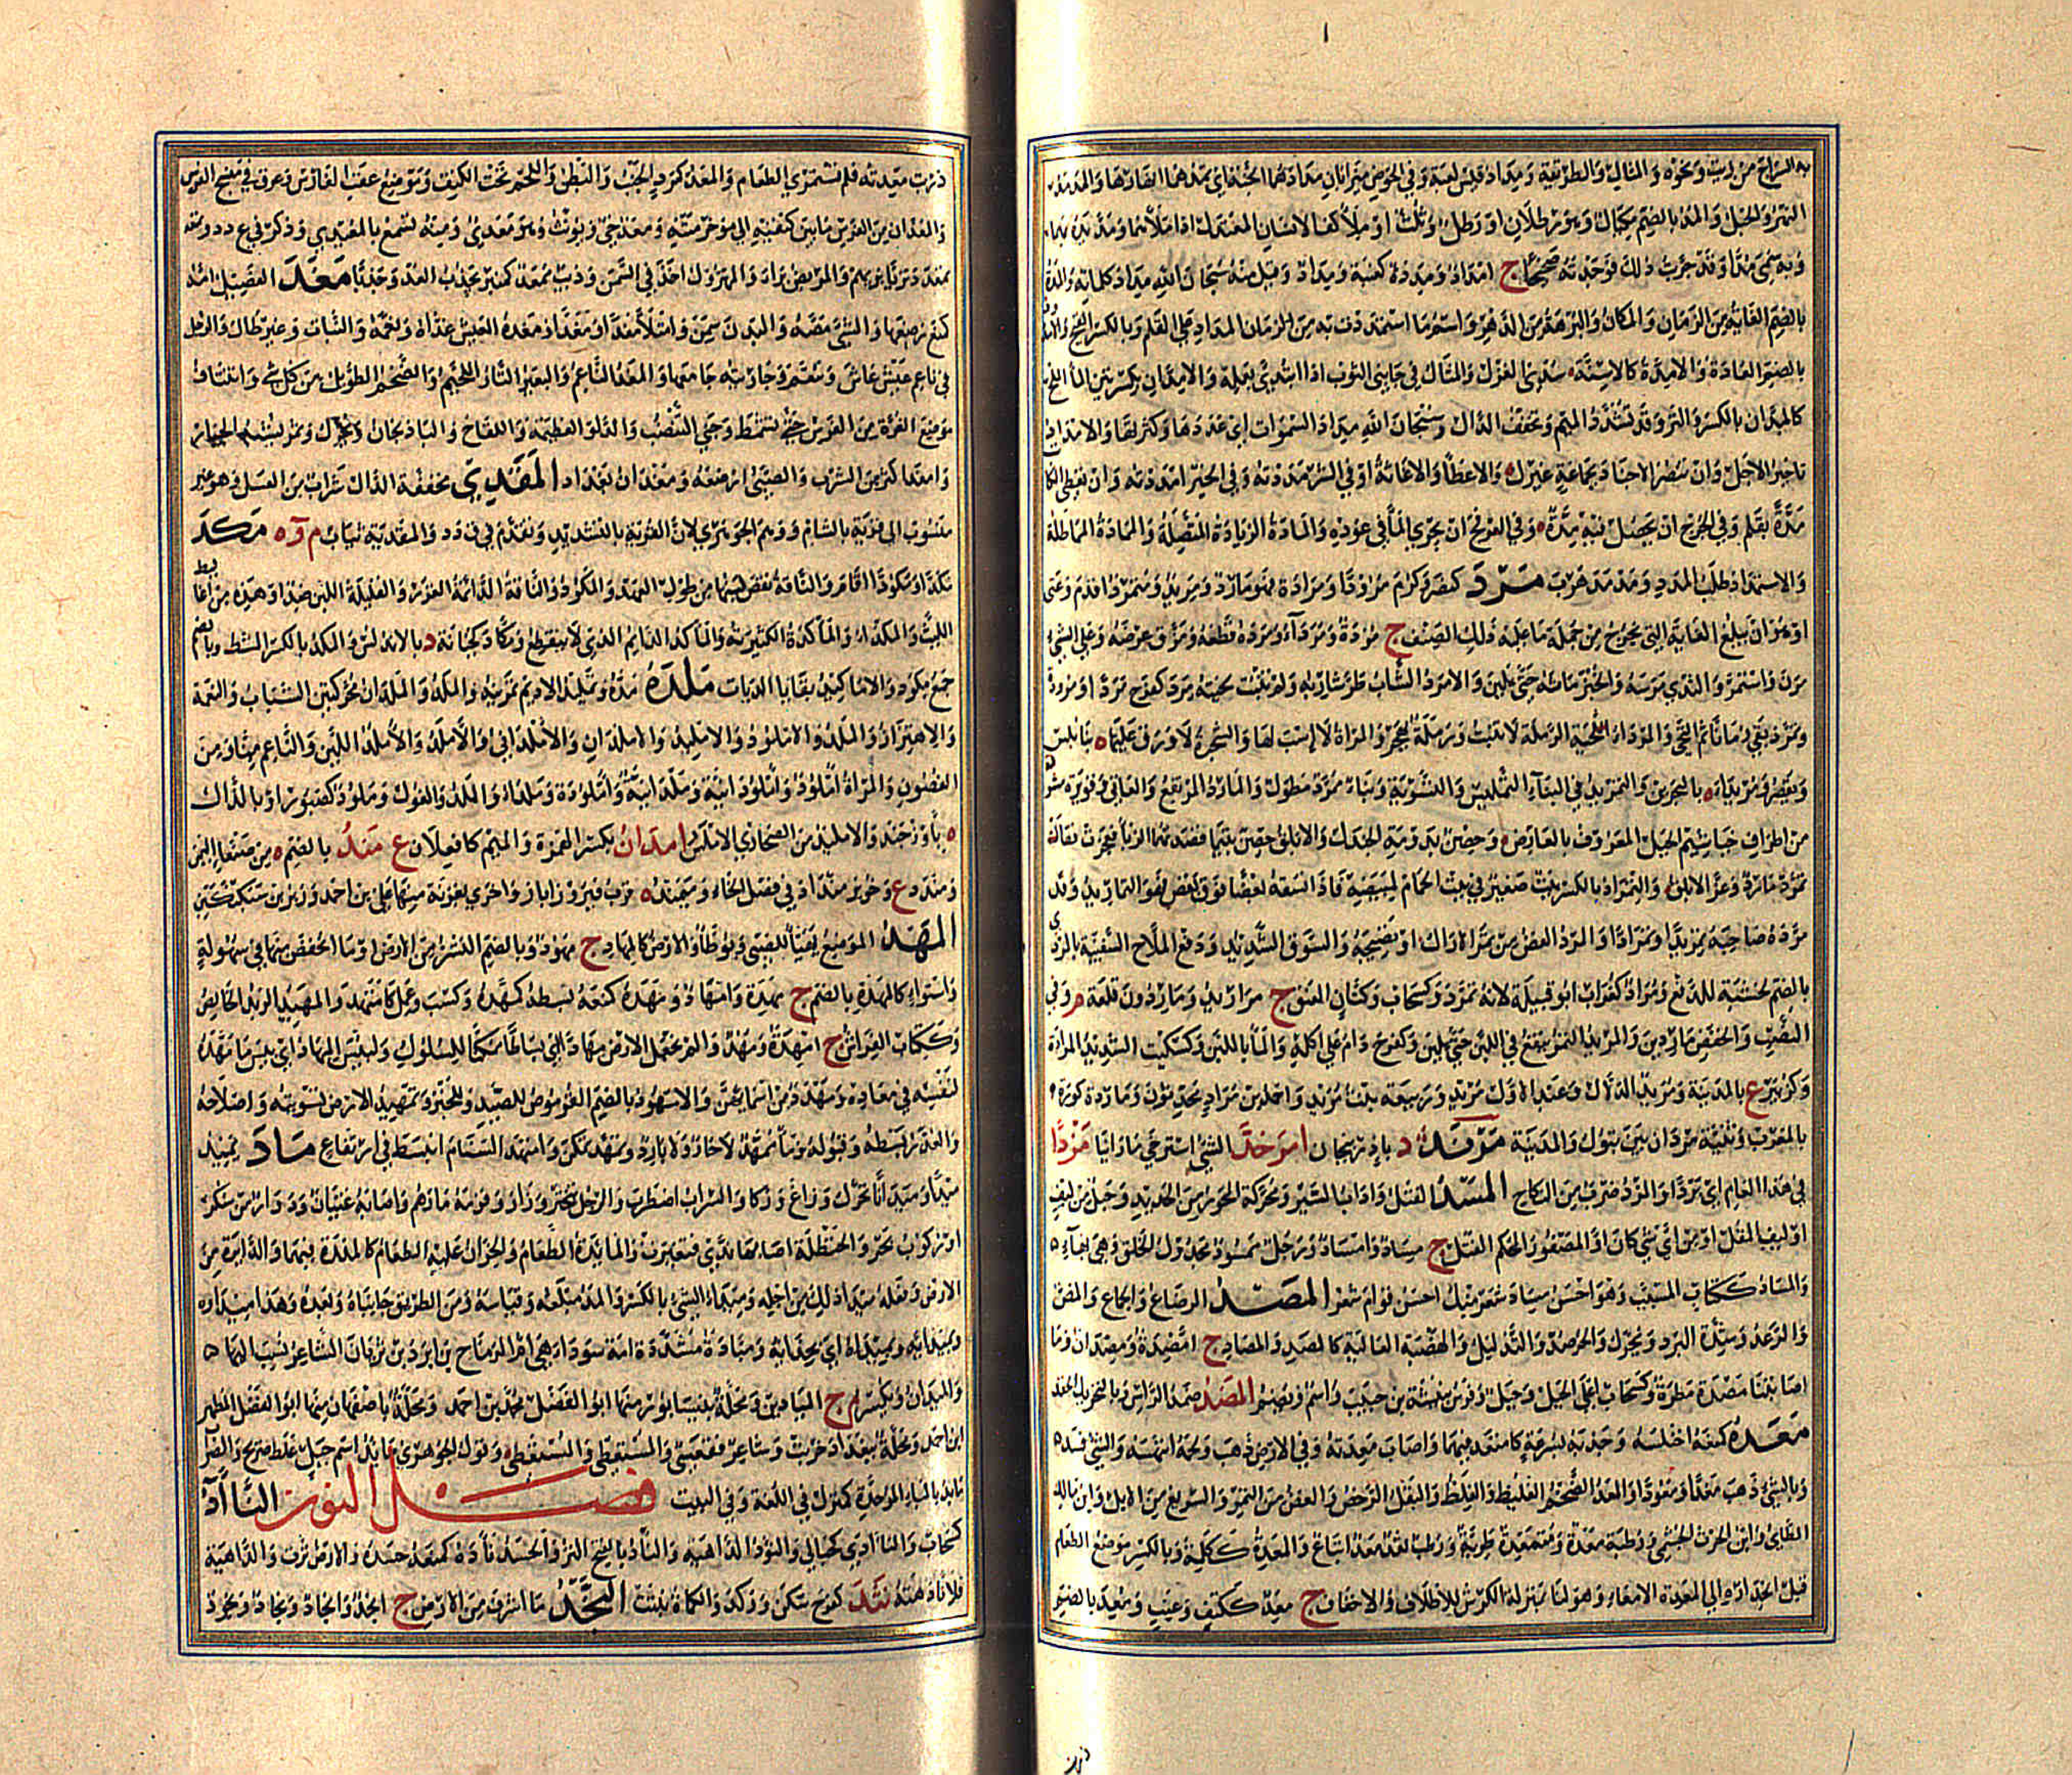 السراج من زيت ونحوه والمثال والطريقة ومداد قيس لعبة وفي الحوض ميزابان مدادهما الجنة اي تمدهما انهارها والمدمد
النهر والحبل والمد بالضم مكيال وهو رطلان او رطل وثلث او ملأ كفا الانسان المعتدل اذا ملأهما ومد يده بهما
وبه سمي مدا وقد جربت ذلك فوجدته صحيحا ج امداد ومددة كعنبة ومداد وقيل منه سبحان الله مداد كلماته والمدة
بالضم الغاية من الزمان والمكان والبرهة من الدهر واسم ما استمددت به من المداد على القلم وبالكسر القيح
بالضم العادة والامدة كالاسنة سدى الغزل والمساك في جانبي الثوب اذا ابتدئ بعمله والامدان بكسرتين الماء الملح
كالمدان بالكسر والنز وقد تشدد الميم وتخفف الدال وسبحان الله مداد السموات اي عددها وكثرتها والامداد
تاخير الاجل وان تنصر الاجناد بجماعة غيرك والاعطاء والاغاثة او في الشر مددته وفي الخير امددته وان تعطي الكا
مدة بقلم وفي الجرح ان يحصل فيه مدة وفي العرفج ان يجري الماء في عوده والمادة الزيادة المتصلة والمادة المماطلة
والاستمداد طلب المدد ومدمد هرب مرد كنصر وكرم مرودا ومرادة فهو مارد ومريد ومتمرد اقدم وعتى
او هو ان يبلغ الغاية التي يخرج من جملة ما عليه ذلك الصنف ج مردة ومرداء ومرده قطعه ومزق عرضه وعلى الشيء
مرن واستمر والثدي مرسه والخبز ماثه حتى يلين والامرد الشاب طر شاربه ولم تنبت لحيته مرد كفرح مردا ومرودة
وتمرد بقي زمانا ثم التحى والمرداء الرملة لا تنبت ورملة بهجر والمراة لا است لها والشجرة لا ورق عليها ه بنابلس
ويقصر ومريداء ه بالبحرين والتمريد في البناء التمليس والتسوية وبناء ممرد مطول والمارد المرتفع والعاتي وقويرة مشر
من اطراف خياشيم الجبل المعروف بالعارض ه وحصن بدومة الجندل والابلق حصن بتيماء قصدتهما الزباء فعجزت فقالت
تمرد مارد وعز الابلق والتمراد بالكسر بيت صغير في بيت الحمام لمبيضه فاذا نسقه بعضا فوق بعض فهو التماريد وقد
مرده صاحبه تمريدا وتمرادا والمرد الغض من ثمر الاراك او نضيجه والسوق الشديد ودفع الملاح السفينة بالمردي
بالضم لخشبة للدفع ومراد كغراب ابو قبيلة لانه تمرد وكسحاب وكتان العنق ج مراريد وماردون قلعة م وفي
النصب والخفض ماردين والمريد التمر ينقع في اللبن حتى يلين وكفرح دام على اكله والماء باللبن وكسكيت الشديد المرادة
وكزبير ع بالمدينة ومريد الدلال وعبد الاول مزيد وربيعة بنت مزيد واحمد بن مراد محدثون وماردة كورة
بالمغرب وثنية مردان بين تبوك والمدينة مرند د باذربيجان امرخد الشيء استرخى ما رأينا مزدا
في هذا العام اي بردا والمزد ضرب من النكاح المسد الفتل واداب السير ومحركة المحور من الحديد وحبل من ليف
او ليف المقل او من اي شيء كان او المضفور المحكم الفتل ج مساد وامساد ورجل ممسود مجدول الخلق وهي بهاء
والمساد ككتاب المسئب وهو احسن مساد شعر منك احسن قوام شعر المصد الرضاع والجماع والمص
والرعد وشدة البرد ويحرك والحر ضد والتذليل والهضبة العالية كالمصد والمصاد ج امصدة ومصدان وما
اصابتنا مصدة مطرة وكسحاب اعلى الجبل وجبل وفرس نبيشة بن حبيب واسم ويضم المضد ضمد الراس وبالتحريك الحقد
معده كمنعه اختلسه وجذبه بسرعة كامتعد فيهما واصاب معدته وفي الارض ذهب ولحمه انتهسه والشيء فسد
وبالشيء ذهب معدا ومعودا والمعد الضخم الغليظ والغلظ والبقل الرخص والغض من الثمر والسريع من الابل وابن مالك
الطائي وابن الحرث الجشمي ورطبة معدة ومتمعدة طرية ورطب ثعد معد اتباع والمعدة ككلمة وبالكسر موضع الطعام
قبل انحداره الى الامعاء وهو لنا بمنزلة الكرش للاظلاف والاخفاف ج معد ككتف وعنب ومعد بالضم
ذربت معدته فلم تستمرئ الطعام والمعد كمرد الجنب والبطن واللحم تحت الكتف وموضع عقب الفارس وعرق في منسج الفرس
والمعدان من الفرس ما بين كتفيه الى مؤخر متنه ومعد حي ويؤنث وهو معدي ومنه تسمع بالمعيدي وذكر في ع د د وتمعد
تمعدد تزيا بزيهم والمريض برأ والمهزول اخذ في السمن وذئب ممعد كمنبر يجذب العدو جذبا مغد الفصيل امه
كمنع رضعها والشيء مصه والبدن سمن وامتلأ مغدا ومغدا ومغده العيش غذاه ونعمه والنبات وغيره طال والرجل
في ناعم عيش عاش وتنعم وجاريته جامعها والمغد الناعم والبعير التار اللحيم والضخم الطويل من كل شيء وانتتاف
موضع الغرة من الفرس حتى تشمط وجنى التنضب والدلو العظيمة واللفاح والباذنجان ويحرك وثمر يشبه الخيار
وامغد اكثر من الشرب والصبي ارضعه ومغدان بغداد المقدي مخففة الدال شراب من العسل وهو غير
منسوب الى قرية بالشام ووهم الجوهري لان القرية بالتشديد وتقدم في ق د د والمقدية ثياب م وه مكد
مكدا ومكودا اقام والناقة نقص لبنها من طول العهد والمكود الناقة الدائمة الغزر والقليلة اللبن ضد او هذه من اغاليط
الليث والمكداء والماكدة الكثيرته والماكد الدائم الذي لا ينقطع ومكادة كجبانة د بالاندلس والمكد بالكسر المشط وبالضم
جمع مكود والاماكيد بقايا الديات ملده مده وتمليد الاديم تمرينه والملد والملدان محركتين الشباب والنعمة
والاهتزاز والملد والاملود والامليد والاملدان والاملداني والاملد والاملد اللين والناعم منا ومن
الغصون والمراة املود واملودانية وملدانية واملودة وملداء والملد الغول وملود كصبور او بالذال
ه باوزجند والامليد من الصحاري الامليس امدان بكسر الهمزة والميم كافعلان ع مند بالضم ه من صنعاء اليمن
ومندد ع وخويز منداد في فصل الخاء وميمند ه قرب فيروزاباد واخرى بغزنة منها علي بن احمد وزير بن سبكتكين
المهد الموضع يهيأ للصبي ويوطأ والارض كالمهاد ج مهود وبالضم النشز من الارض او ما انخفض منها في سهولة
واستواء كالمهدة بالضم ج مهدة وامهاد ومهده كمنعه بسطه كمهده وكسب وعمل كامتهد والمهيد الزبد الخالص
وككتاب الفراش ج امهدة ومهد والم نجعل الارض مهادا اي بساطا ممكنا للسلوك ولبئس المهاد اي بئس ما مهد
لنفسه في معاده ومهدد من اسمائهن والامهود بالضم القرموص للصيد وللخبز وتمهيد الامر تسويته واصلاحه
والعذر بسطه وقبوله وماء ممهد لا حار ولا بارد وتمهد تمكن وامتهد السنام انبسط في ارتفاع ماد يميد
ميدا وميدانا تحرك وزاغ وزكا والسراب اضطرب والرجل تبختر وزار وقومه مارهم واصابه غثيان ودوار من سكر
او ركوب بحر والحنظلة اصابها ندى فتغيرت والمائدة الطعام والخوان عليه الطعام كالميدة فيهما والدائرة من
الارض وفعله ميد ذلك من اجله وميداء الشيء بالكسر والمد مبلغه وقياسه ومن الطريق جانباه وبعده وهذا ميداؤه
وبميدائه وبميداه اي بحذائه وميادة مشددة امة سوداء وهي ام الرماح بن ابرد بن ثوبان الشاعر نسب اليها
والميدان ويكسر م ج الميادين ومحلة بنيسابور منها ابو الفضل محمد بن احمد ومحلة باصفهان منها ابو الفضل المطهر
ابن احمد ومحلة ببغداد خربت وشاعر فقعسي والمستعطي والمستعطى وقول الجوهري مائد اسم جبل غلط صريح والصواب
مابد بالباء الموحدة كمنزل في اللغة وفي البيت فصل النون النآد
كسحاب والنآدى كحبالى والنؤود الداهية والنأد بالفتح النز والحسد نأده كمنعه حسده والارض نزت والداهية
فلانا دهته نثد كفرح سكن وركد والكمأة نبتت النجد ما اشرف من الارض ج انجد وانجاد ونجاد ونجود